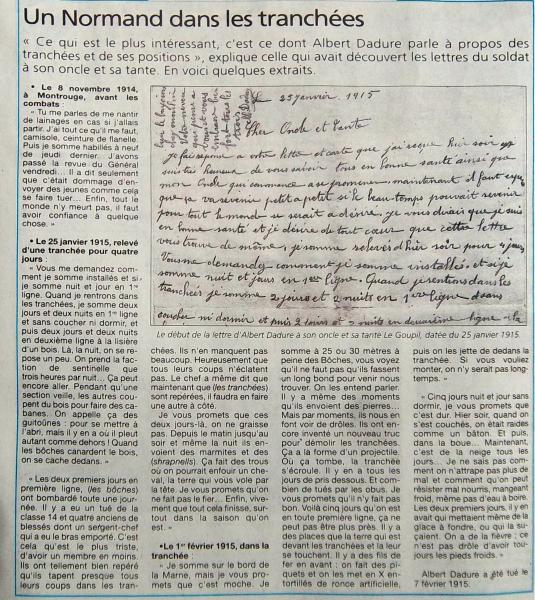 Un Normand dans les tranchées
« Ce qui est le plus intéressant, c'est ce dont Albert Dadure parle à propos des
tranchées et de ses positions », explique celle qui avait découvert les lettres du soldat
à son oncle et sa tante. En voici quelques extraits.
• Le 8 novembre 1914,
à Montrouge, avant les
combats :
« Tu me parles de me nantir
de lainages en cas si j'allais
partir. J'ai tout ce qu'il me faut,
camisole, ceinture de flanelle.
Puis je somme habillés à neuf
de jeudi dernier. J'avons
passé la revue du Général
vendredi... Il a dit seulement
que c'était dommage d'en-
voyer des jeunes comme cela
se faire tuer... Enfin, tout le
monde n'y meurt pas, il faut
avoir confiance à quelque
chose. »
• Le 25 janvier 1915, relevé
d'une tranchée pour quatre
jours :
« Vous me demandez com-
ment je somme installés et si
je somme nuit et jour en 1re
ligne. Quand je rentrons dans
les tranchées, je somme deux
jours et deux nuits en 1re ligne
et sans coucher ni dormir, et
puis deux jours et deux nuits
en deuxième ligne à la lisière
d'un bois. Là, la nuit, on se re-
pose un peu. On prend la fac-
tion de sentinelle que
trois heures par nuit... Ça peut
encore aller. Pendant qu'une
section veille, les autres cou-
pent du bois pour faire des ca-
banes. On appelle ça des
guitoünes : pour se mettre à
l'abri, mais il y en a où il pleut
autant comme dehors ! Quand
les bôches canardent le bois,
on se cache dedans. »
« Les deux premiers jours en
première ligne, (les bôches)
ont bombardé toute une jour-
née. Il y a eu un tué de la
classe 14 et quatre anciens de
blessés dont un sergent-chef
qui a eu le bras emporté. C'est
cela qu'est le plus triste,
d'avoir un membre en moins.
Ils ont tellement bien repéré
qu'ils tapent presque tous
leurs coups dans les tran-
25 janvier 1915
Cher Oncle et Tante
je fais réponse a votre lettre et carte que j'ai reçue hier soir
suis très heureux de vous savoir tous en bonne santé ainsi que
mon Oncle qui commence a se promener maintenant il faut espér
que ça va revenir petit a petit si le beau temps pouvait revenir
pour tout le monde se serait a désiré, je vous dirais que je suis
en bonne santé et je désire de tout cœur que cette lettre
vous trouve de même, je somme relevés d'hier soir pour 4 jours
Vous me demandez comment je somme installés et si je
somme nuit et jours en 1ere ligne. Quand je rentrons dans les
tranchées je somme 2 jours et 2 nuits en 1ere ligne sans
coucher ni dormir et puis 2 jours et 2 nuits en deuxième ligne a la
Le début de la lettre d'Albert Dadure à son oncle et sa tante Le Goupil, datée du 25 janvier 1915.
chées. Ils n'en manquent pas
beaucoup. Heureusement que
tous leurs coups n'éclatent
pas. Le chef a même dit que
maintenant que (les tranchées)
sont repérées, il faudra en faire
une autre à côté.
Je vous promets que ces
deux jours-là, on ne graisse
pas. Depuis le matin jusqu'au
soir et même la nuit ils en-
voient des marmites et des
(shrapnells). Ça fait des trous
où on pourrait enfouir un che-
val, la terre qui vous vole par
la tête. Je vous promets qu'on
ne fait pas le fier... Enfin, vive-
ment que tout cela finisse, sur-
tout dans la saison qu'on
est. »
•Le 1er février 1915, dans la
tranchée :
« Je somme sur le bord de
la Marne, mais je vous pro-
mets que c'est moche. Je
somme à 25 ou 30 mètres à
peine des Bôches, vous voyez
qu'il ne faut pas qu'ils fassent
un long bond pour venir nous
trouver. On les entend parler.
Il y a même des moments
qu'ils envoient des pierres...
Mais par moments, ils nous en
font voir de drôles. Ils ont en-
core inventé un nouveau truc
pour démolir les tranchées.
Ça a la forme d'un projectile.
Où ça tombe, la tranchée
s'écroule. Il y en a tous les
jours de pris dessous. Et com-
bien de tués par les obus. Je
vous promets qu'il n'y fait pas
bon. Voilà cinq jours qu'on est
en toute première ligne, ça ne
peut pas être plus près. Il y a
des places que la terre qui est
devant les tranchées et la leur
se touchent. Il y a des fils de
fer en avant : on fait des pi-
quets et on les met en X en-
tortillés de ronce artificielle,
puis on les jette de dedans la
tranchée. Si vous vouliez
monter, on n'y serait pas long-
temps. »
« Cinq jours nuit et jour sans
dormir, je vous promets que
c'est dur. Hier soir, quand on
s'est couchés, on était raides
comme un bâton. Et puis,
dans la boue... Maintenant,
c'est de la neige tous les
jours... Je ne sais pas com-
ment on n'attrape pas plus de
mal et comment qu'on peut
résister mal nourris, mangeant
froid, même pas d'eau à boire.
Les deux premiers jours, il y en
avait qui mettaient même de la
glace à fondre, ou qui la su-
çaient. On a de la fièvre : ce
n'est pas drôle d'avoir tou-
jours les pieds froids. »
Albert Dadure a été tué le
7 février 1915.